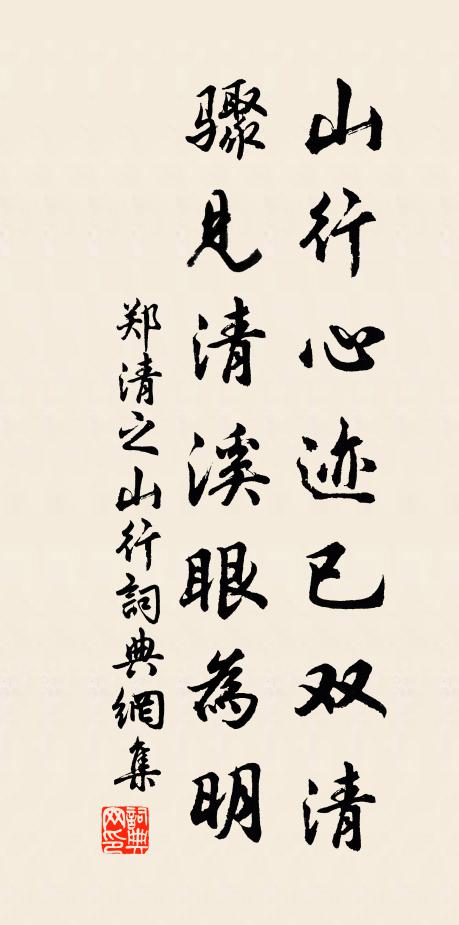 山行心迹已双清
骤见清溪眼為明
郑清之山行詞典網集
詞典网印